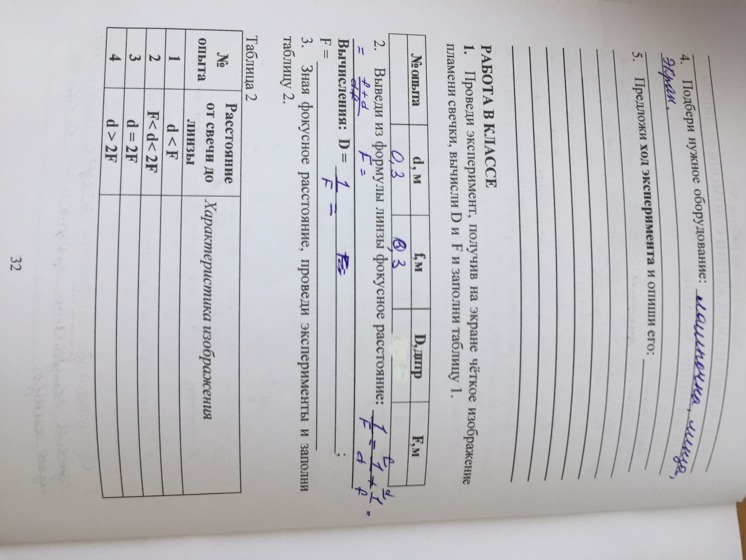 4. Подбери нужное оборудование: лампочка, линза,
экран.
5. Предложи ход эксперимента и опиши его:
РАБОТА В КЛАССЕ
1. Проведи эксперимент, получив на экране чёткое изображение
пламени свечки, вычисли D и F и заполни таблицу 1.
№ опыта d, м f,м D,дптр F,м
0,3 0,3
2. Выведи из формулы линзы фокусное расстояние: 1/F = 1/d + 1/f =
= f+d/df F =
Вычисления: D = 1/F = ;
F =
3. Зная фокусное расстояние, проведи эксперименты и заполни
таблицу 2.
Таблица 2
№ опыта Расстояние от свечи до линзы Характеристика изображения
1 d < F
2 F< d< 2F
3 d = 2F
4 d > 2F
32